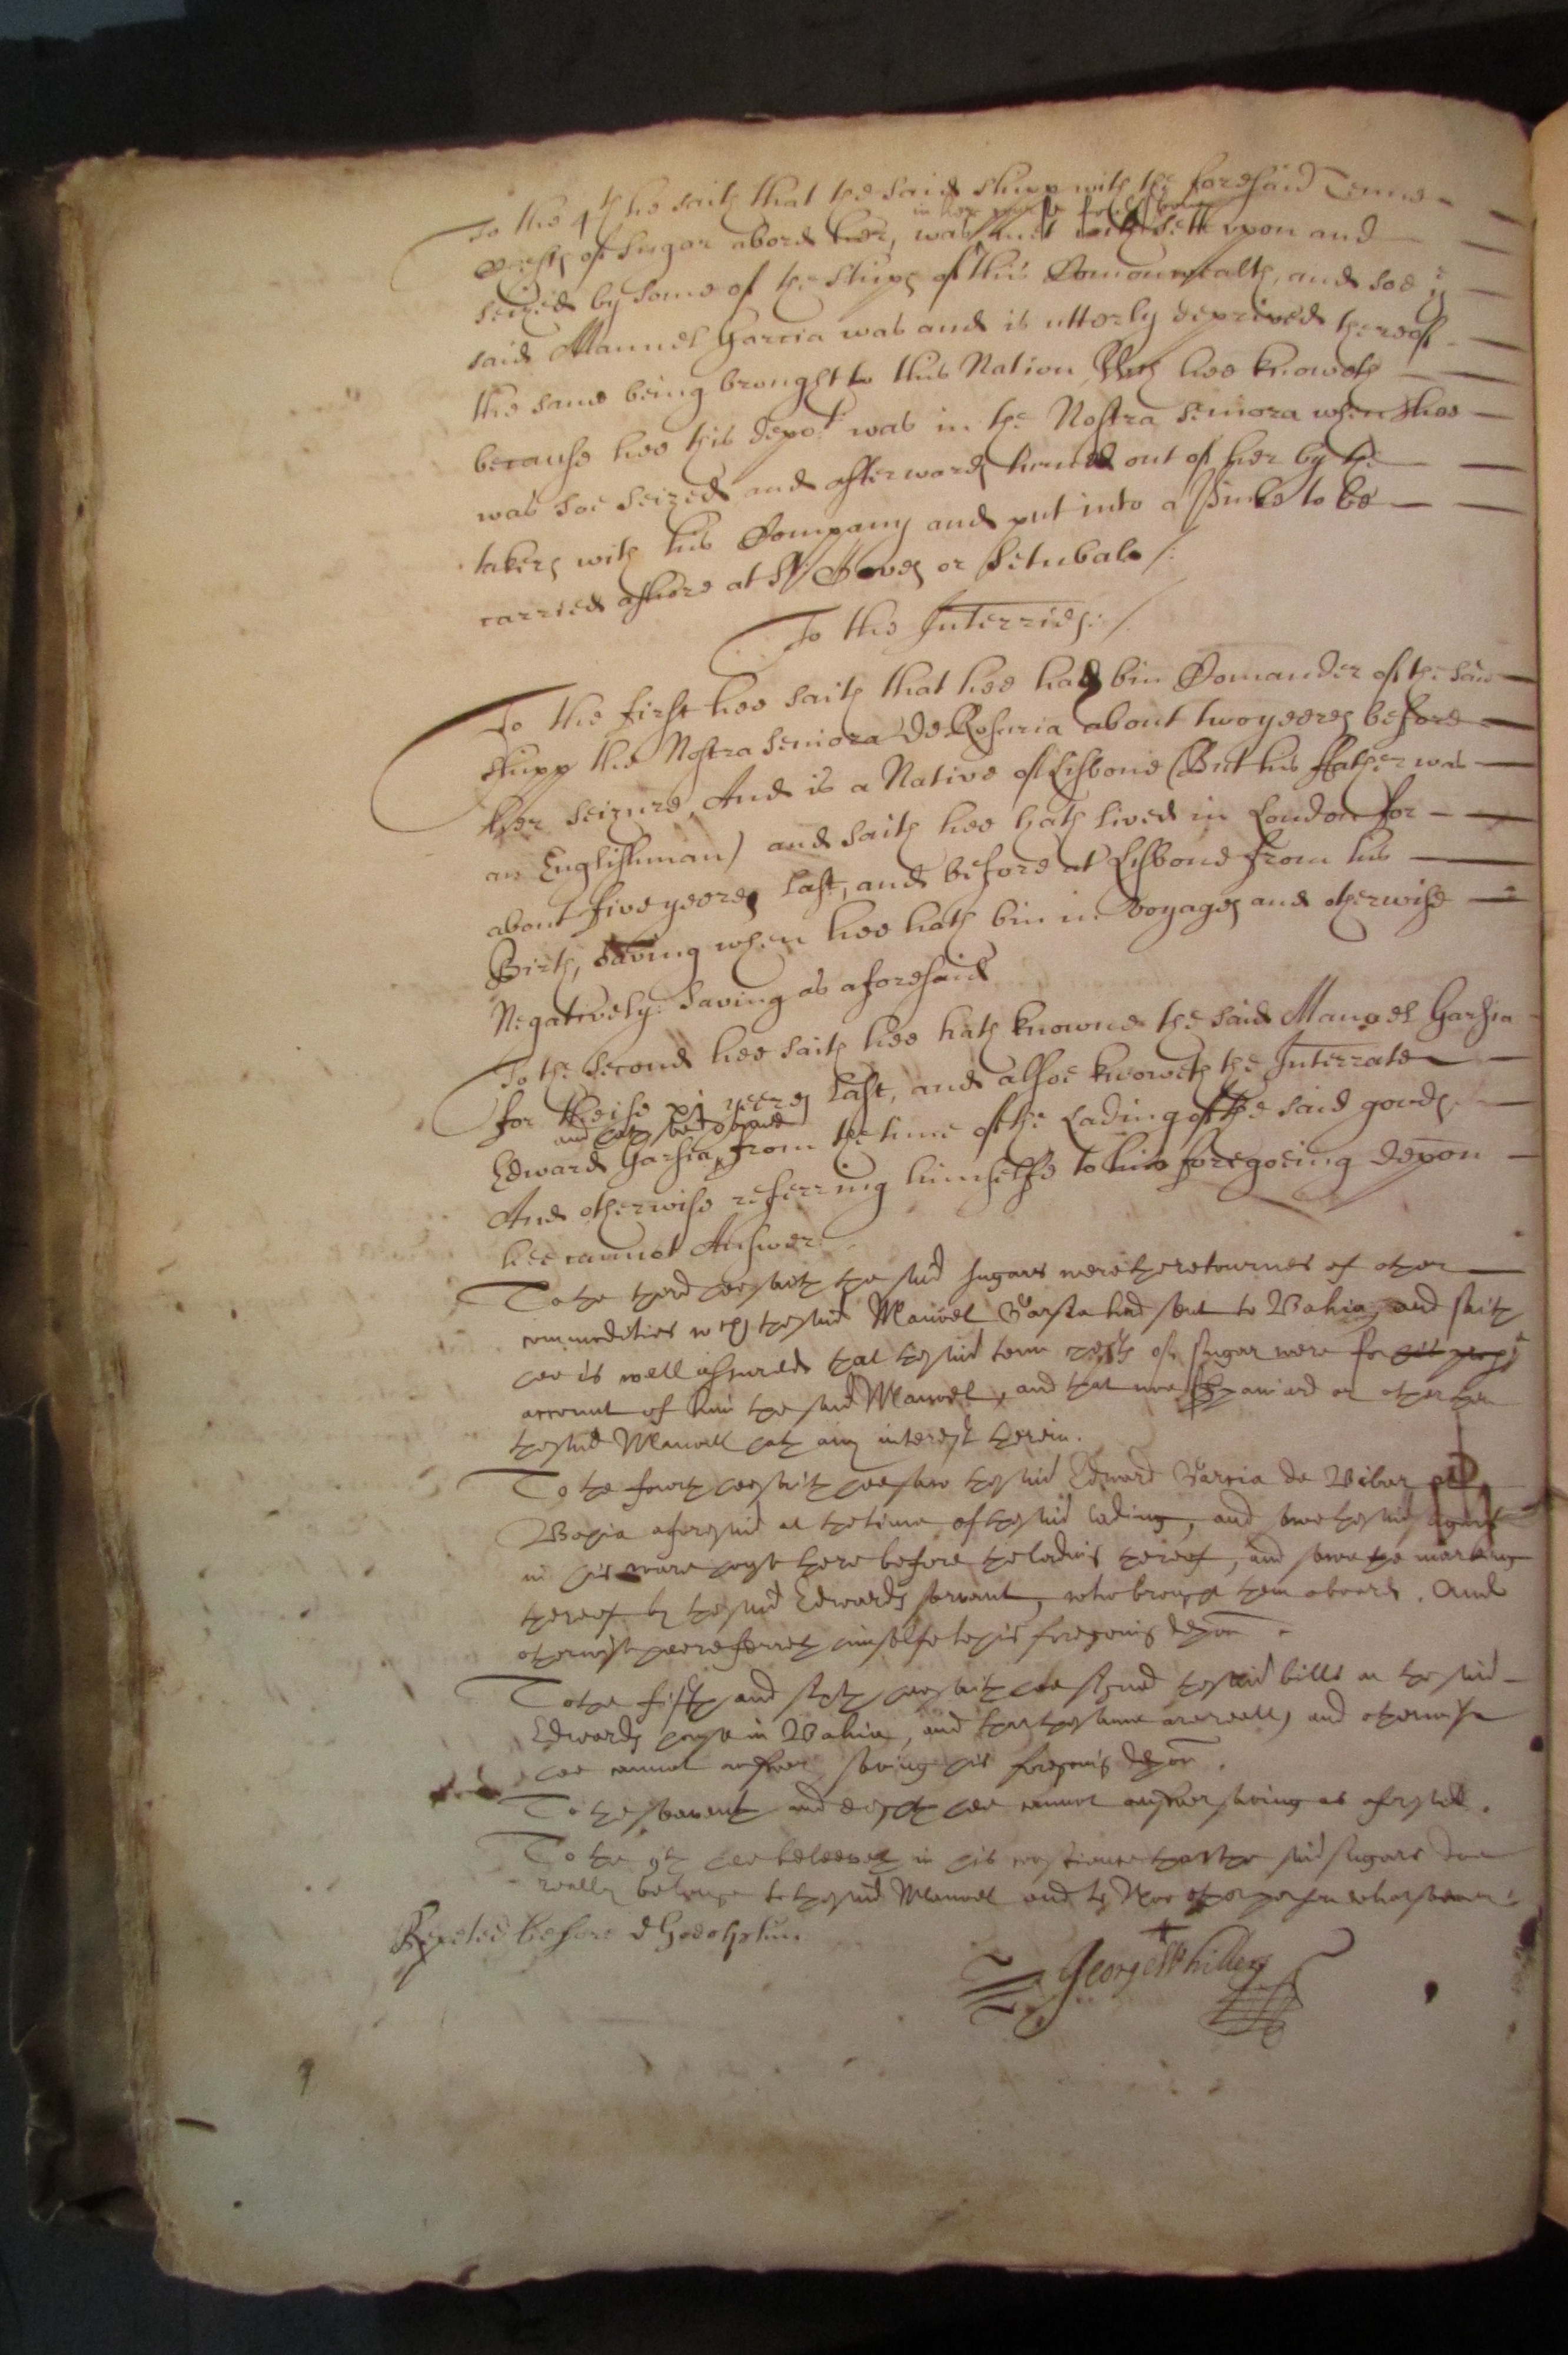 To the 4th he saith that the said shipp with the foresaid Tenne
Chests of Sugar abord her, was mett with sett upon and
in her course for Lisbone
seized by some of the shipps of this Comonwealth, and soe ye
said Manuel Garcia was and is utterly deprived thereof
the same being brought to this Nation Which hee knoweth
because hee this depot was in the Nostra Seniora when shee
was soe seized and afterwards turned out of her by the
takers with his Company and put into a Pinke to be
carried ashore at St Oves or Setubal /:
To the Interries: /
To the first hee saith that hee had bin Comander of the said
shipp the Nostra Seniora de Rosaria about two yeeres before
her seizure, And is a Native of Lisbone (But his ffather was
an Englishman) and saith hee hath lived in London for
about five yeeres last, and before at Lisbone from his
Birth, saving when hee hath bin in voyages and otherwise
Negatively: saving as aforesaid
To the second hee saith hee hath knowne the said Manuel Garsia
for theise xj yeeres last, and alsoe knoweth the Interrate
Edward Garsia, from the time of the Lading of the said goods,
And otherwise referring himselfe to his foregoeing depon
hee cannot Answer.
To the third hee saith the said sugars were the retournes of other
commodities wch the said Manuel Garsia had sent to Bahia, and saith
hee is well assured that the said tenn chests of sugar were for his prop
account of him the said Manuel, and that noe Spaniard or other then
the said Manuell hath any interest therein.
To the fourth hee saith hee saw the said Edward Garcia de Bibar at
Bahia aforesaid at the time of the said lading, and sawe the said sugars
in his ware house there before the lading thereof, and sawe the marking
thereof by the said Edwards servant, who brought them aboard. And
otherwise hee referreth himselfe to his foregoeing depon
To the fifth and sixth hee saith hee signed the said bills in the said
Edwards house in Bahia, and that the same are reall, and otherwise
hee cannot answer saving his foregoing depon.
To the seaventh and eighth hee cannot answer saving as aforesaid.
To the 9th hee beleeveth in his conscience that the said sugars doe
really belonge to the said Manuel and to Noe other person whatsoever.
Repeted before d Godolphin.
George Phillips